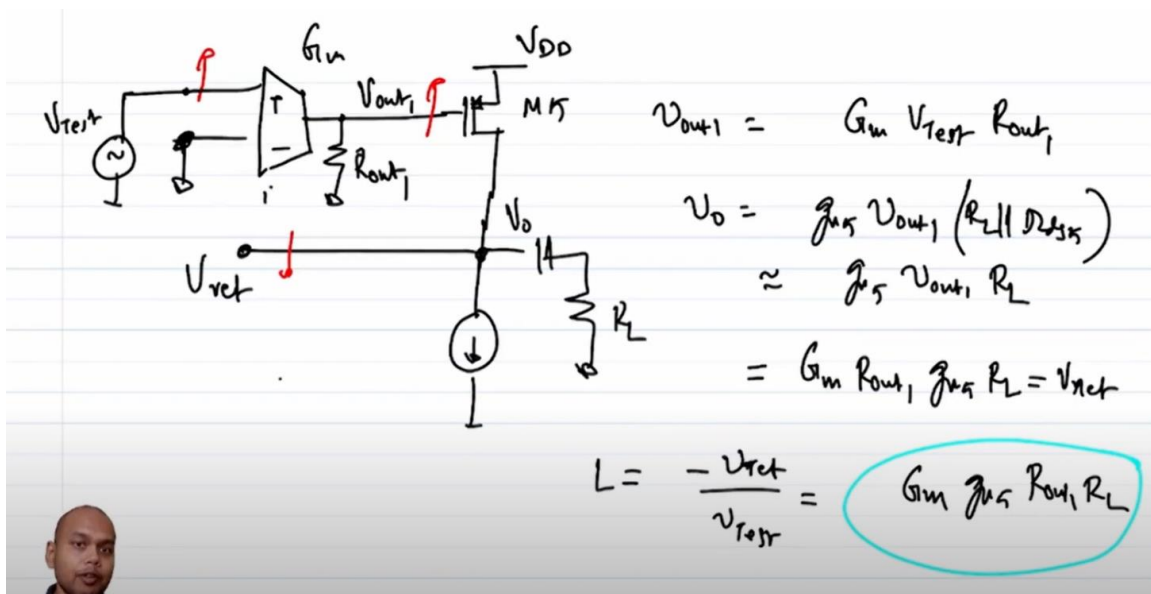 Gm
VDD
VTest
+
−
Vout1
M5
Rout1
Vo
Vret
RL
vout1 = Gm vTest Rout1
vo = gm5 vout1 (RL || rds5)
≈ gm5 vout1 RL
= Gm Rout1 gm5 RL = vret
L = − vret / vTest = Gm gm5 Rout1 RL